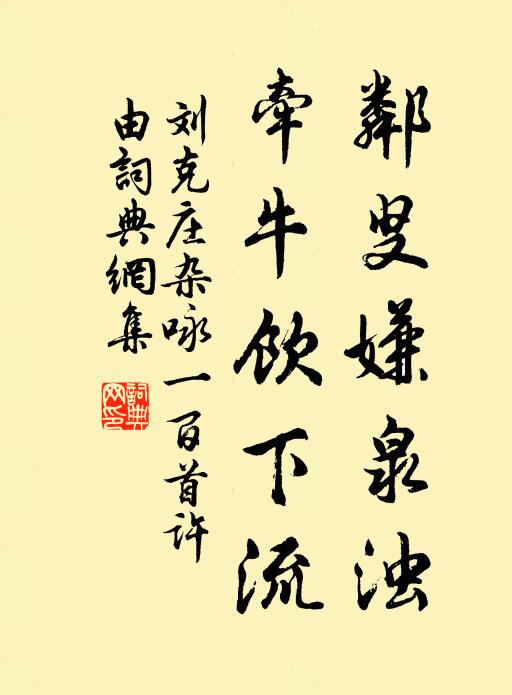 鄰叟嫌泉浊
牽牛飲下流
刘克庄杂咏一百首许
由詞典網集
詞典網印